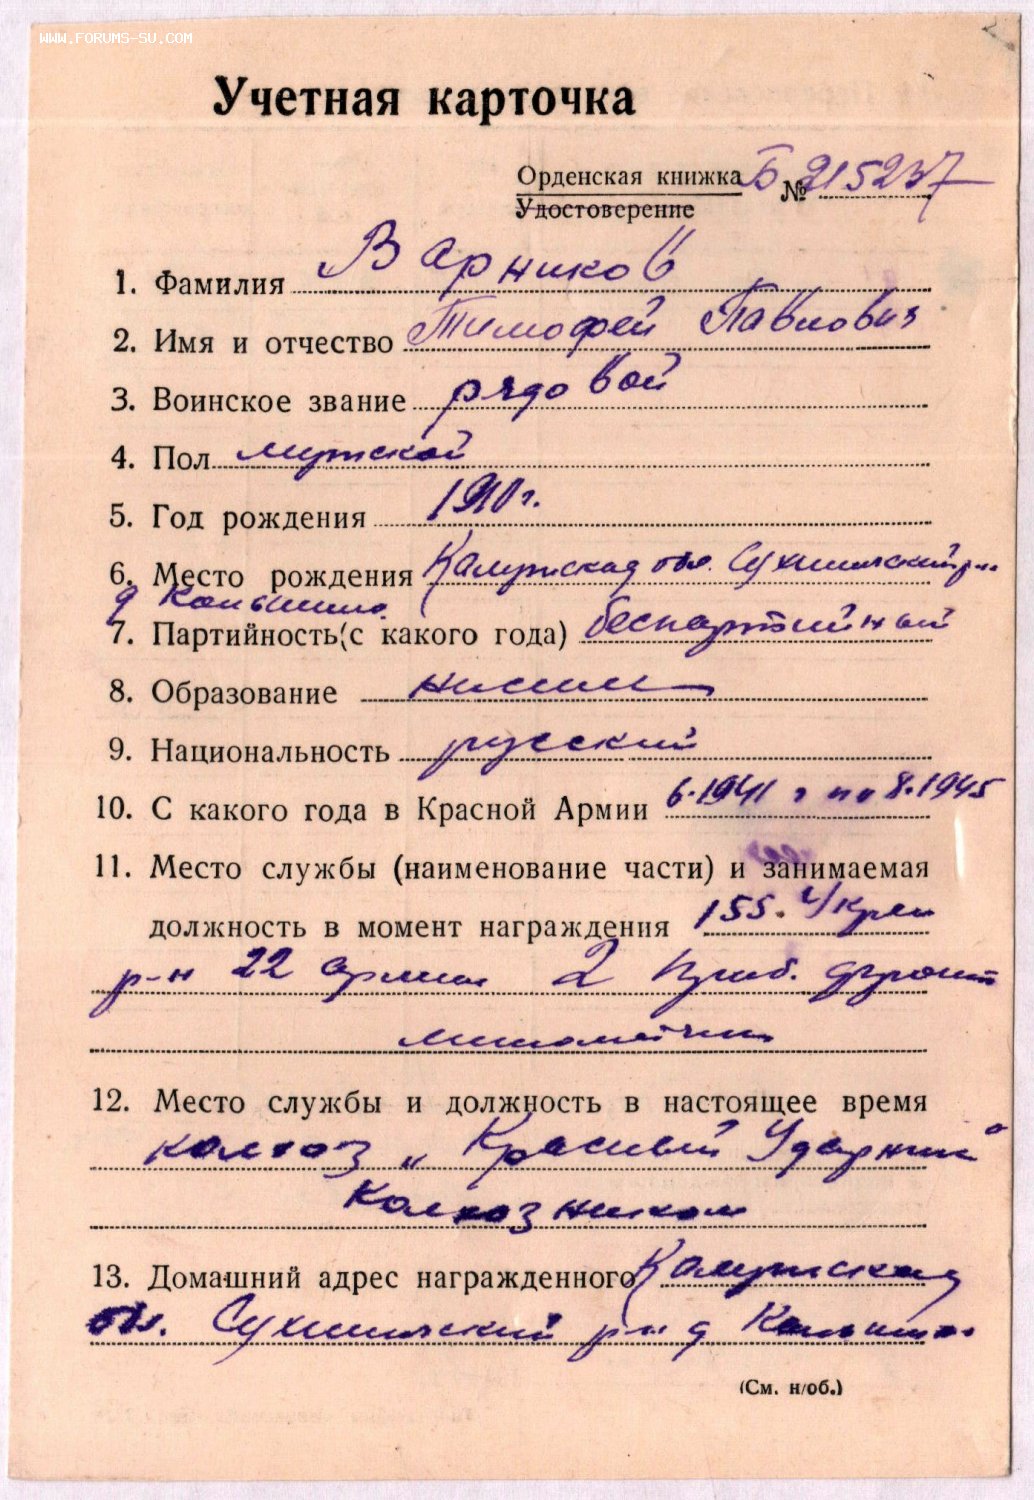 WWW.FORUMS-SU.COM
Учетная карточка
Орденская книжка Б № 215237
Удостоверение
1. Фамилия Варников
2. Имя и отчество Тимофей Павлович
3. Воинское звание рядовой
4. Пол мужской
5. Год рождения 1910 г.
6. Место рождения Калужская обл. Сухиничский р-н
д
7. Партийность (с какого года) беспартийный
8. Образование низшее
9. Национальность русский
10. С какого года в Красной Армии 6.1941 г по 8.1945
11. Место службы (наименование части) и занимаемая
должность в момент награждения 155. У/Креп
р-н 22 армии 2 Приб. фронт
минометчик
12. Место службы и должность в настоящее время
колхоз „Красный Ударник“
колхозником
13. Домашний адрес награжденного Калужская
обл. Сухиничский р-н д
(См. н/об.)